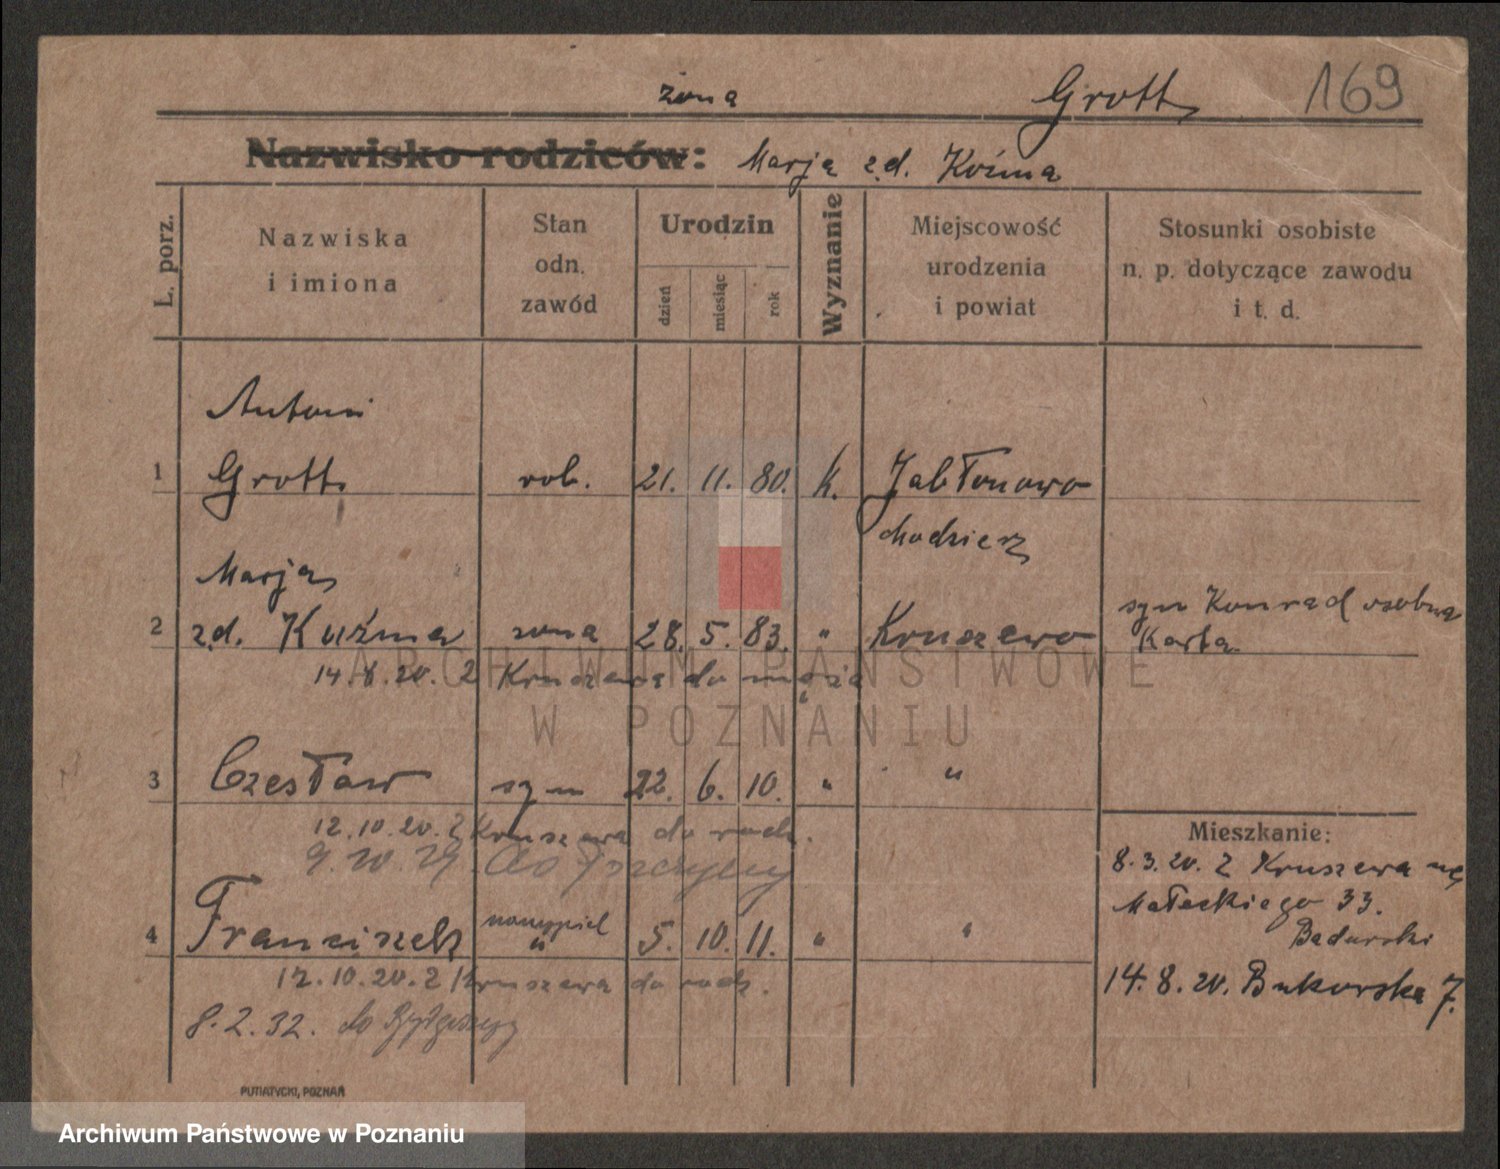 żona
Grott
169
Nazwisko rodziców:
Marja z.d. Koźma
L. porz.
Nazwiska
i imiona
Stan
odn.
zawód
Urodzin
dzień
miesiąc
rok
Wyznanie
Miejscowość
urodzenia
i powiat
Stosunki osobiste
n. p. dotyczące zawodu
i t. d.
Antoni
1 Grott rob. 21. 11. 80. K. Jabłonowo
Chodzież
Marja
2 z.d. Kuźma żona 28. 5. 83. " Kruszewo
syn Konrad osobną
Karta
14.8.20. z Kruszewa do męża
3 Czesław syn 22. 6. 10. " "
12.10.20. z Kruszewa do rodz.
9. 10. 29. do
4 Franciszek " 5. 10. 11. " "
12.10.20. z Kruszewa do rodz.
8.2.32. do Bydgoszczy
Mieszkanie:
8.3.20. z Kruszewa
Małeckiego 33.
Badurski
14.8.20. Bukowska 7.
PUTIATYCKI, POZNAŃ
ARCHIWUM PAŃSTWOWE
W POZNANIU
Archiwum Państwowe w Poznaniu